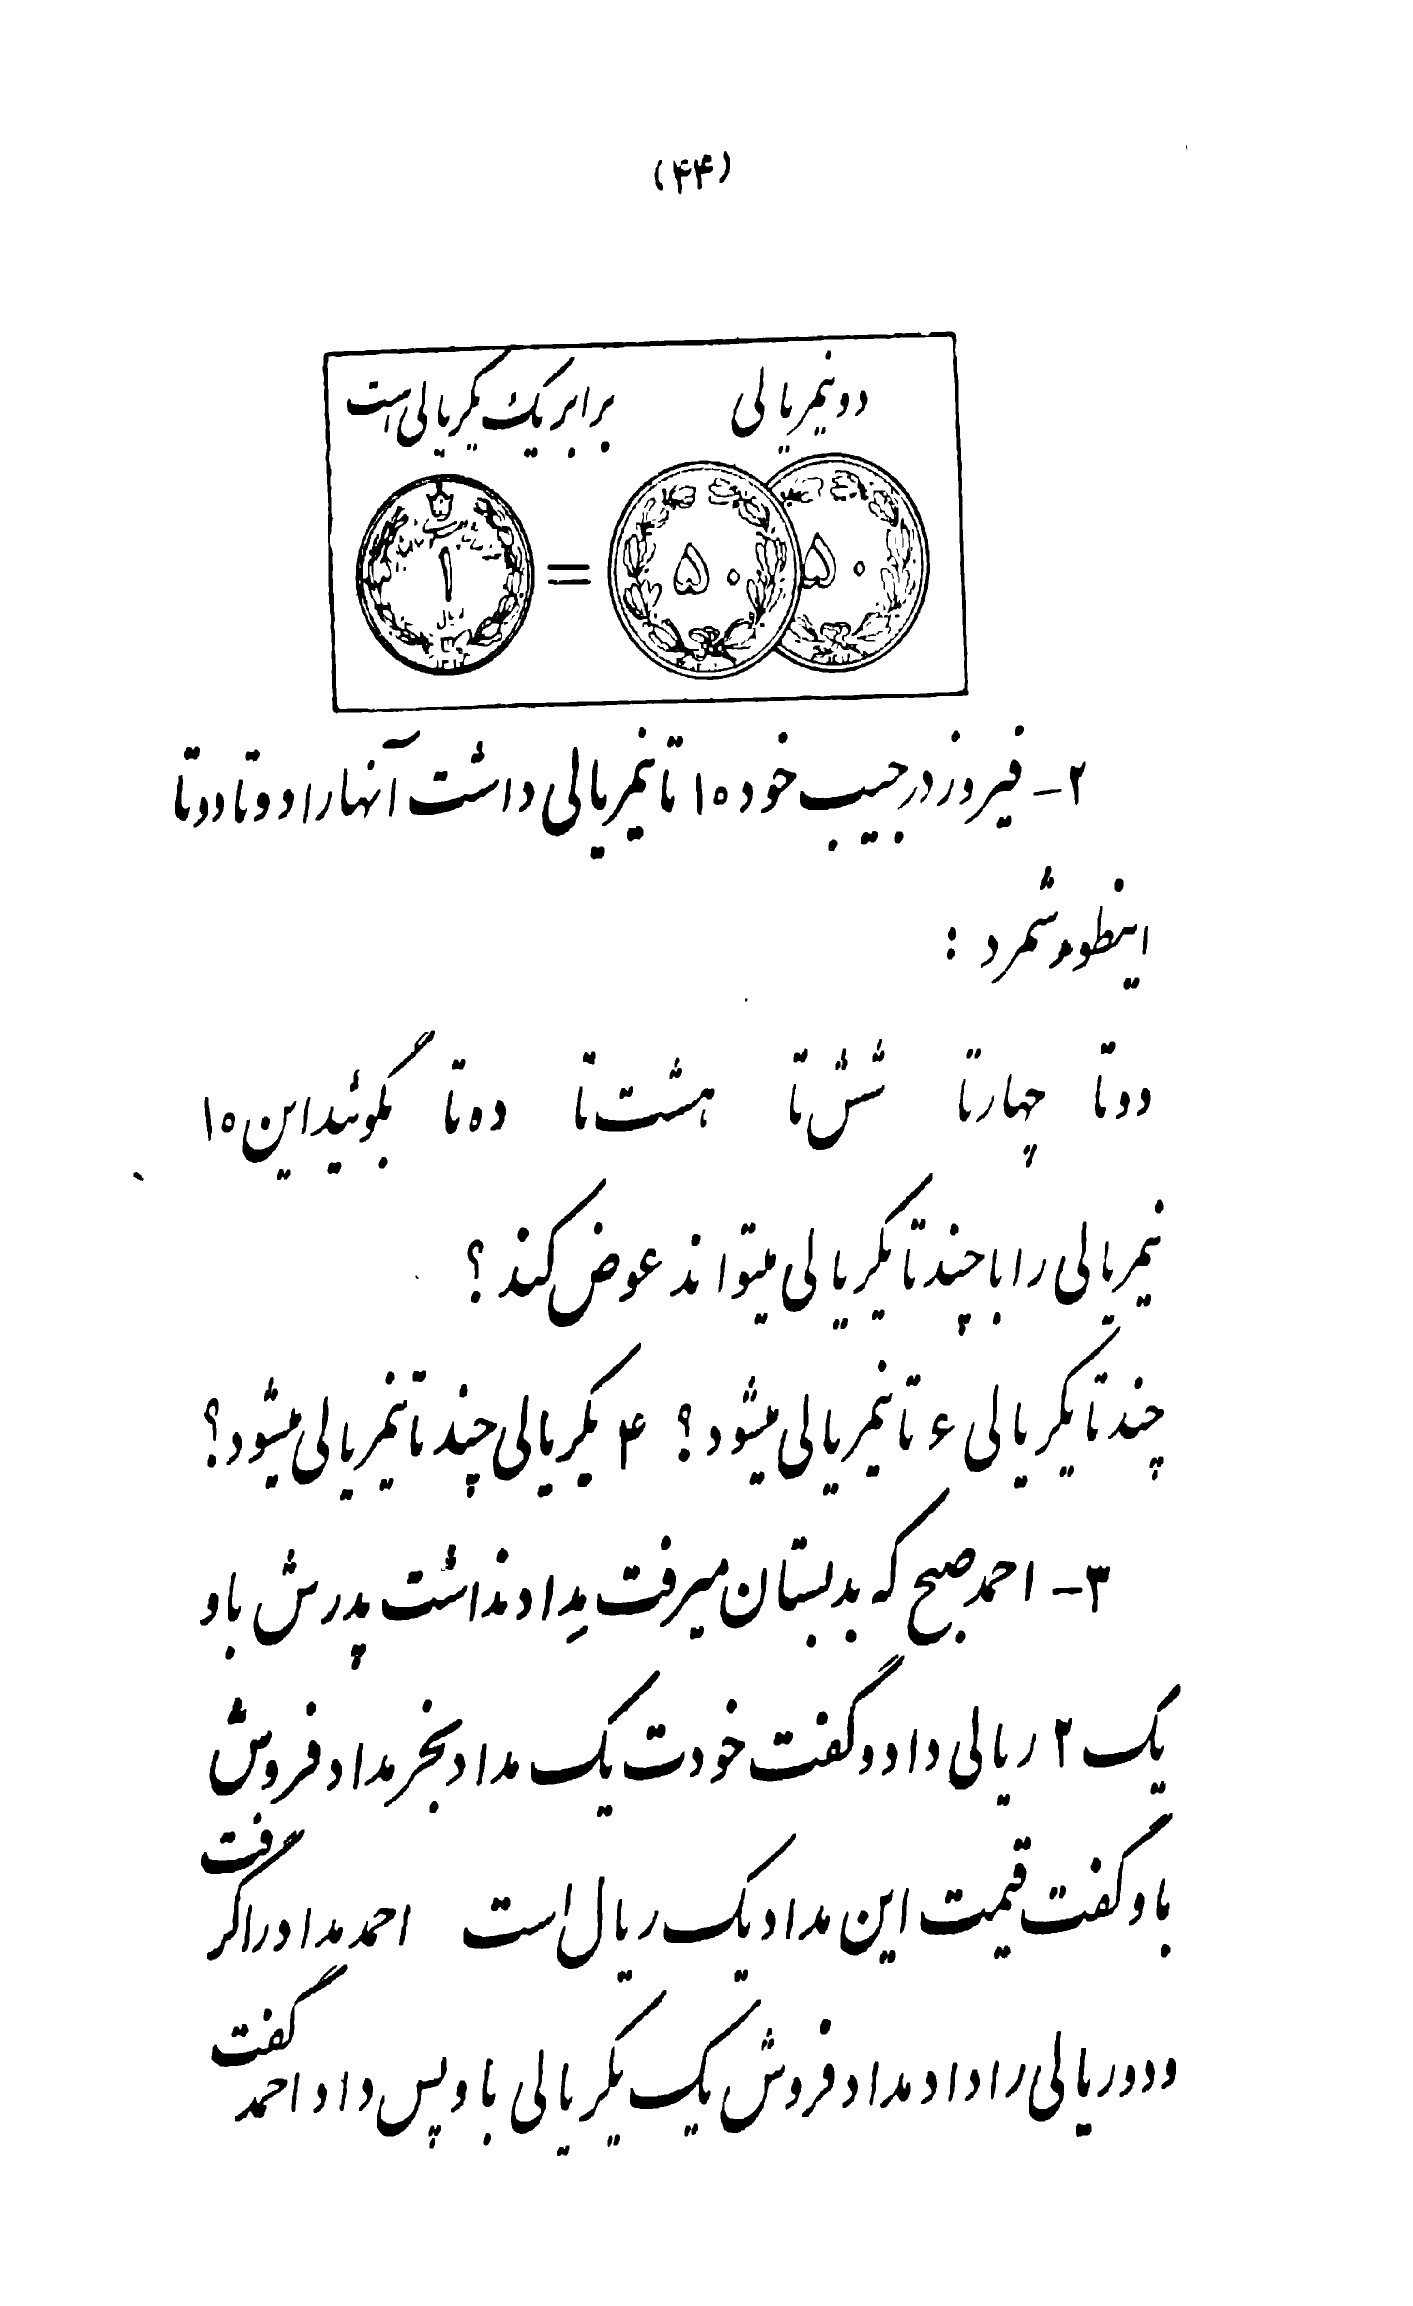 (۴۴)
دو نیمریالی برابر یک یکریالی است
۵۰ ۵۰ = ۱
ریال
۲- فیروز در جیب خود ۱۰ تا نیمریالی داشت آنها را دو تا دو تا
اینطور شمرد :
دو تا چهار تا شش تا هشت تا ده تا بگوئید این ۱۰
نیمریالی را با چند تا یکریالی میتواند عوض کند ؟
چند تا یکریالی ۶ تا نیمریالی میشود ؟ ۴ یکریالی چند تا نیمریالی میشود ؟
۳- احمد صبح که بدبستان میرفت مِداد نداشت پدرش باو
یک ۲ ریالی داد و گفت خودت یک مداد بخر مداد فروش
باو گفت قیمت این مداد یک ریال است احمد مداد را گرفت
و دو ریالی را داد مداد فروش یک یکریالی باو پس داد احمد گفت